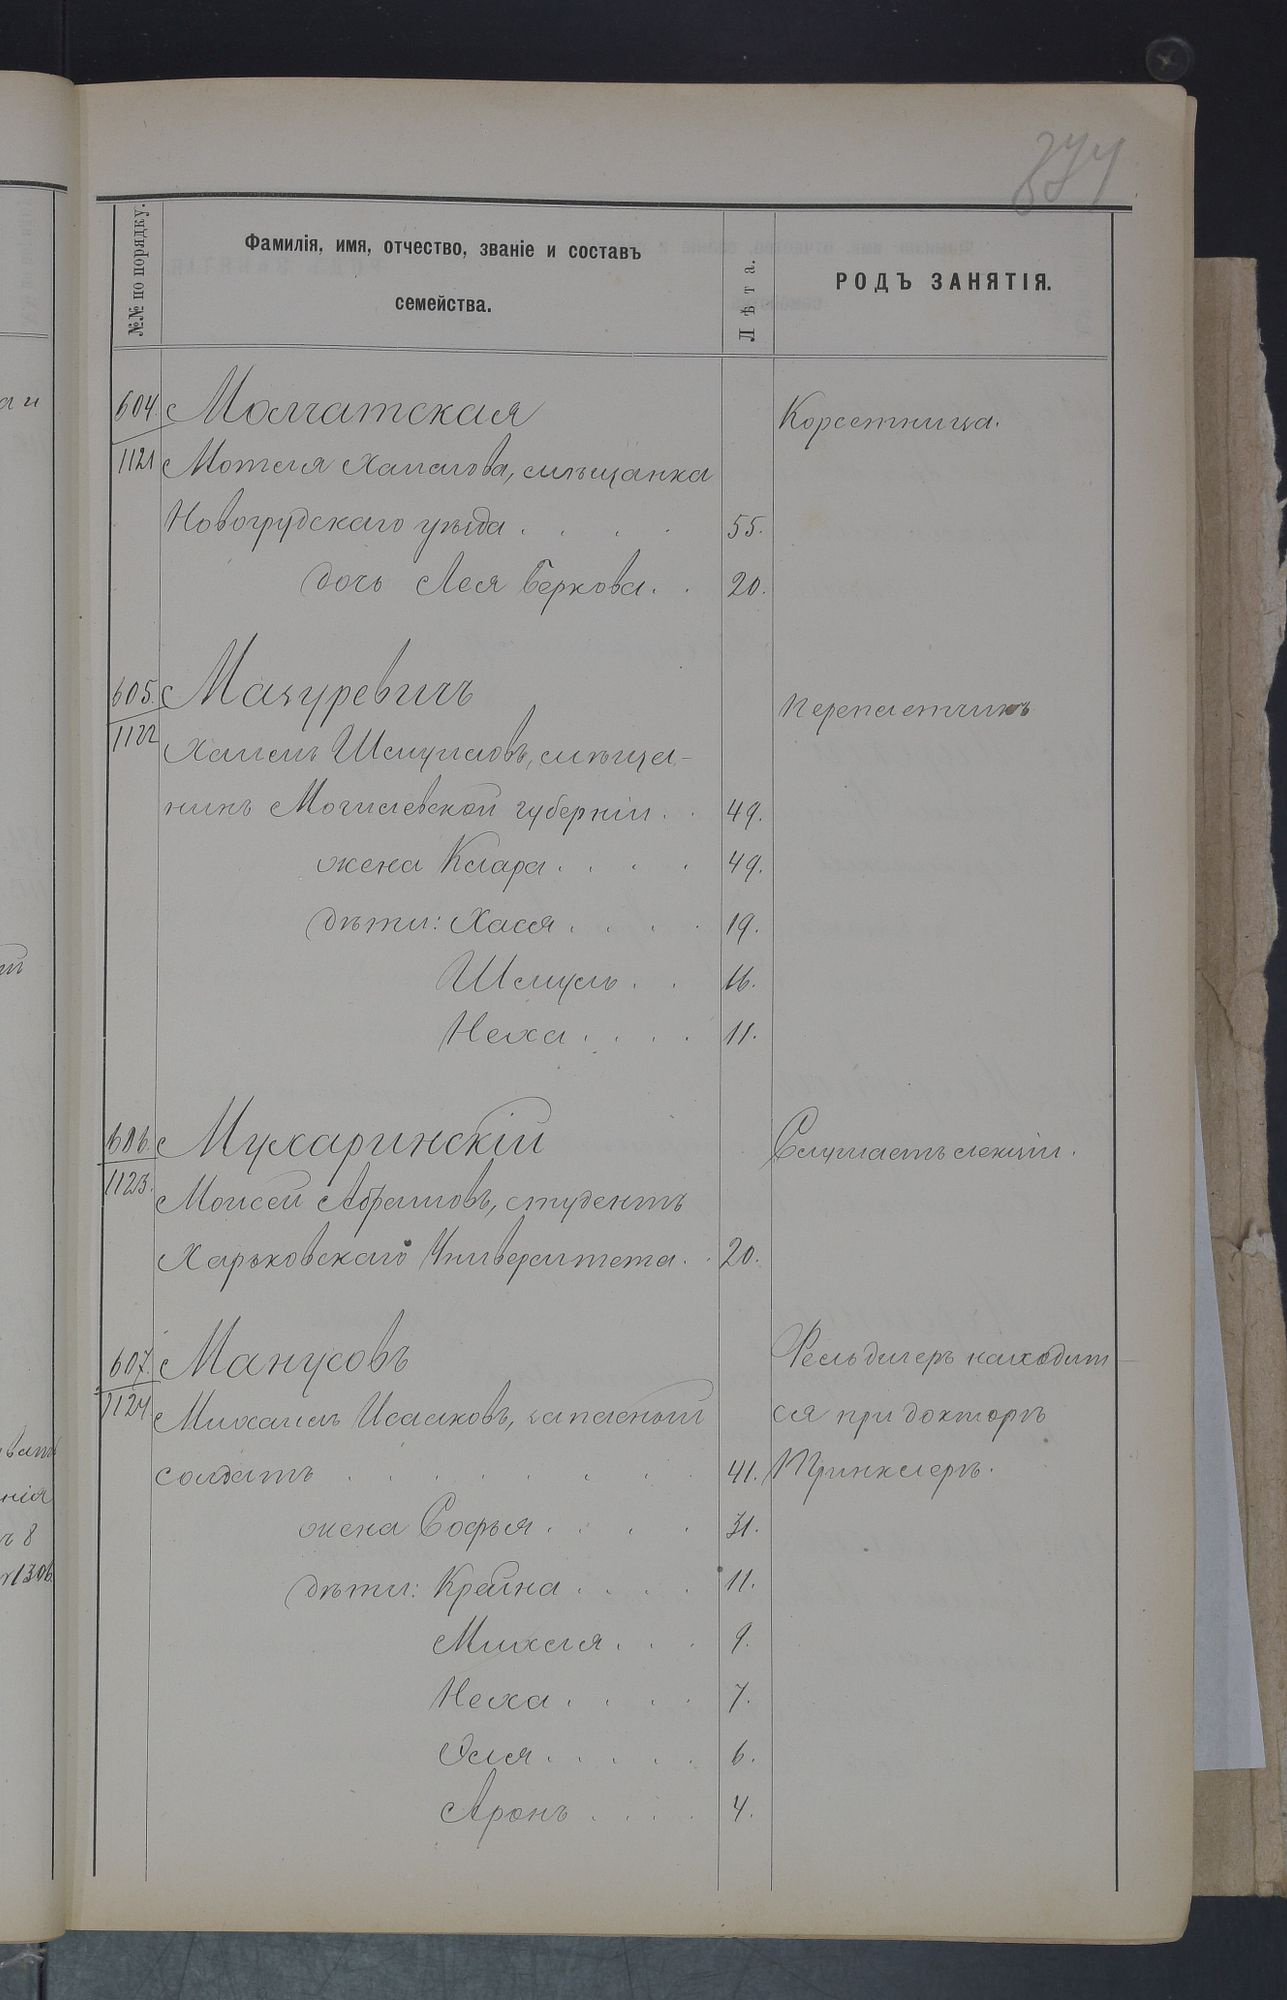 377
№№ по порядку.
Фамилія, имя, отчество, званіе и составъ
семейства.
Лѣта.
РОДЪ ЗАНЯТІЯ.
604. Молчатская Корсетница.
1121 Мотля Хаимова, мѣщанка
Новогрудскаго уѣзда . . . . 55.
дочь Лея Беркова . . 20.
605. Мазуревичъ Переплетчикъ
1122 Хаимъ Шмуиловъ, мѣща-
нинъ Могилевской губерніи . . 49.
жена Клара . . . . 49.
дѣти: Хася . . . . 19.
Шмуль . . 16.
Неха . . . . 11.
606. Мухаринскій Слушаетъ лекціи.
1123. Моисей Абрамовъ, студентъ
Харьковскаго Университета . . 20.
607. Манусовъ Фельдшеръ находит-
1124 Михаилъ Исааковъ, запасный ся при докторѣ
солдатъ . . . . . . . . 41. Принклерѣ.
жена Софья . . . . 31.
дѣти: Крейна . . . . 11.
Михля . . . 9.
Неха . . . . 7.
Эля . . . . . 6.
Аронъ . . . . 4.